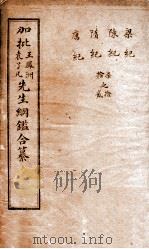 梁紀
陳紀
隋紀
唐紀
加批王鳳洲袁了凡先生綱鑑合纂